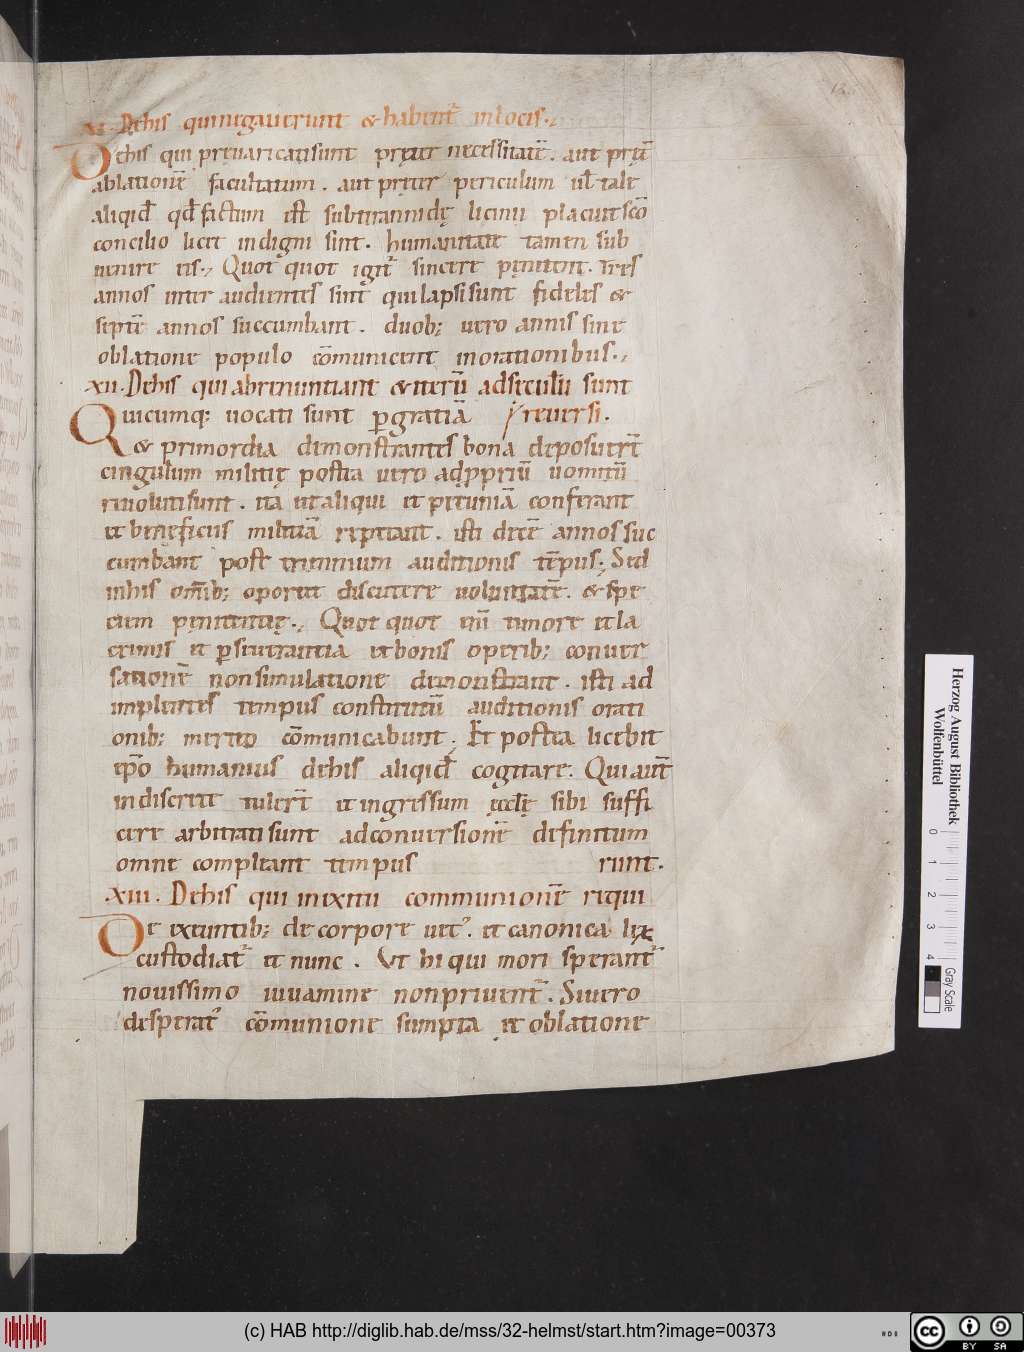 XI. Dehis quinegauerunt & habent̄ inlocis.
Dehis qui preuaricatisunt pręter necessitatē. aut prętē
ablationē facultatum. aut preter periculum uł tale
aliqid̄ qd̄ factum est subtirannidę licinii placuit scō
concilio licet indigni sint. humanitate tamen sub
uenire eis. Quot quot igit̄ sincere pęnitent. Tres
annos inter audientes sint quilapsi sunt fideles &
septē annos succumbant. duob; uero annis sine
oblatione populo cōmunicent inorationibus.
XII. Dehis quiabrenuntiant & iterū adseculū sunt
reuersi.
Quicumq; uocati sunt ꝑgratiā
& primordia demonstrantes bona deposuer̄t
cingulum militię postea uero adꝓpriū uomitū
reuolutisunt. ita utaliqui et pecuniā conferant
et beneficiis militiā repetant. isti decē annos suc
cumbant post triennium auditionis tēpus; Sed
inhis omīb; oportet discutere uoluntatē. & spe
ciem pęnitentię. Quot quot eni timore et la
crimis et ꝑseuerantia et bonis operib; conuer
sationē nonsimulatione demonstrant. isti ad
implentes tempus constitutū auditionis orati
onib; merito cōmunicabunt. Et postea licebit
ep̄o humanius dehis aliqid̄ cogitare. Quiaut̄
indiscrete tuler̄t et ingressum ęcclę sibi suffi
cere arbitrati sunt adconuersionē definitum
omne compleant tempus
runt.
XIII. Dehis qui inexitu communionē requi
De exeuntib; de corpore uet̄. et canonica lex
custodiat̄ et nunc. Ut hi qui mori sperant̄
nouissimo iuuamine nonpriuent̄. Siuero
desperat̄ cōmunione sumpta et oblatione
Herzog August Bibliothek
Wolfenbüttel
0 1 2 3 4
Gray Scale
(c) HAB http://diglib.hab.de/mss/32-helmst/start.htm?image=00373
cc BY SA